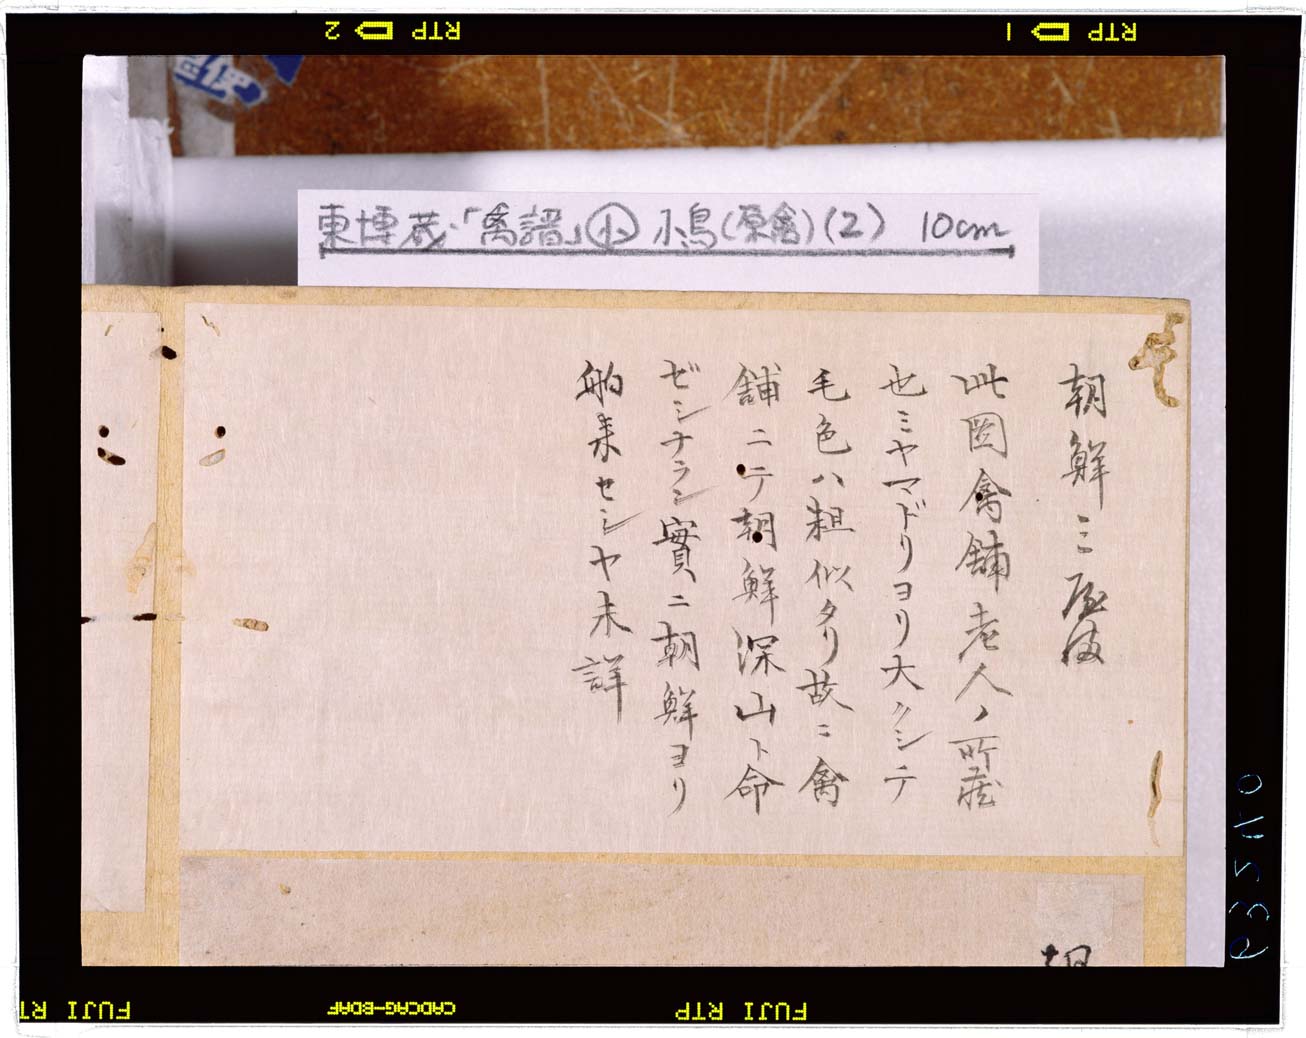 RTP 1
RTP 2
東博蔵・「禽譜」小 小鳥(原禽)(2) 10cm
朝鮮ミ屋ま
此図禽舗老人ノ所蔵
也ミヤマドリヨリ大クシテ
毛色ハ粗似タリ故ニ禽
舗ニテ朝鮮深山ト命
ゼシナラン實ニ朝鮮ヨリ
舶来セシヤ未詳
FUJI RTP
CADCAG-BDAF
FUJI RT